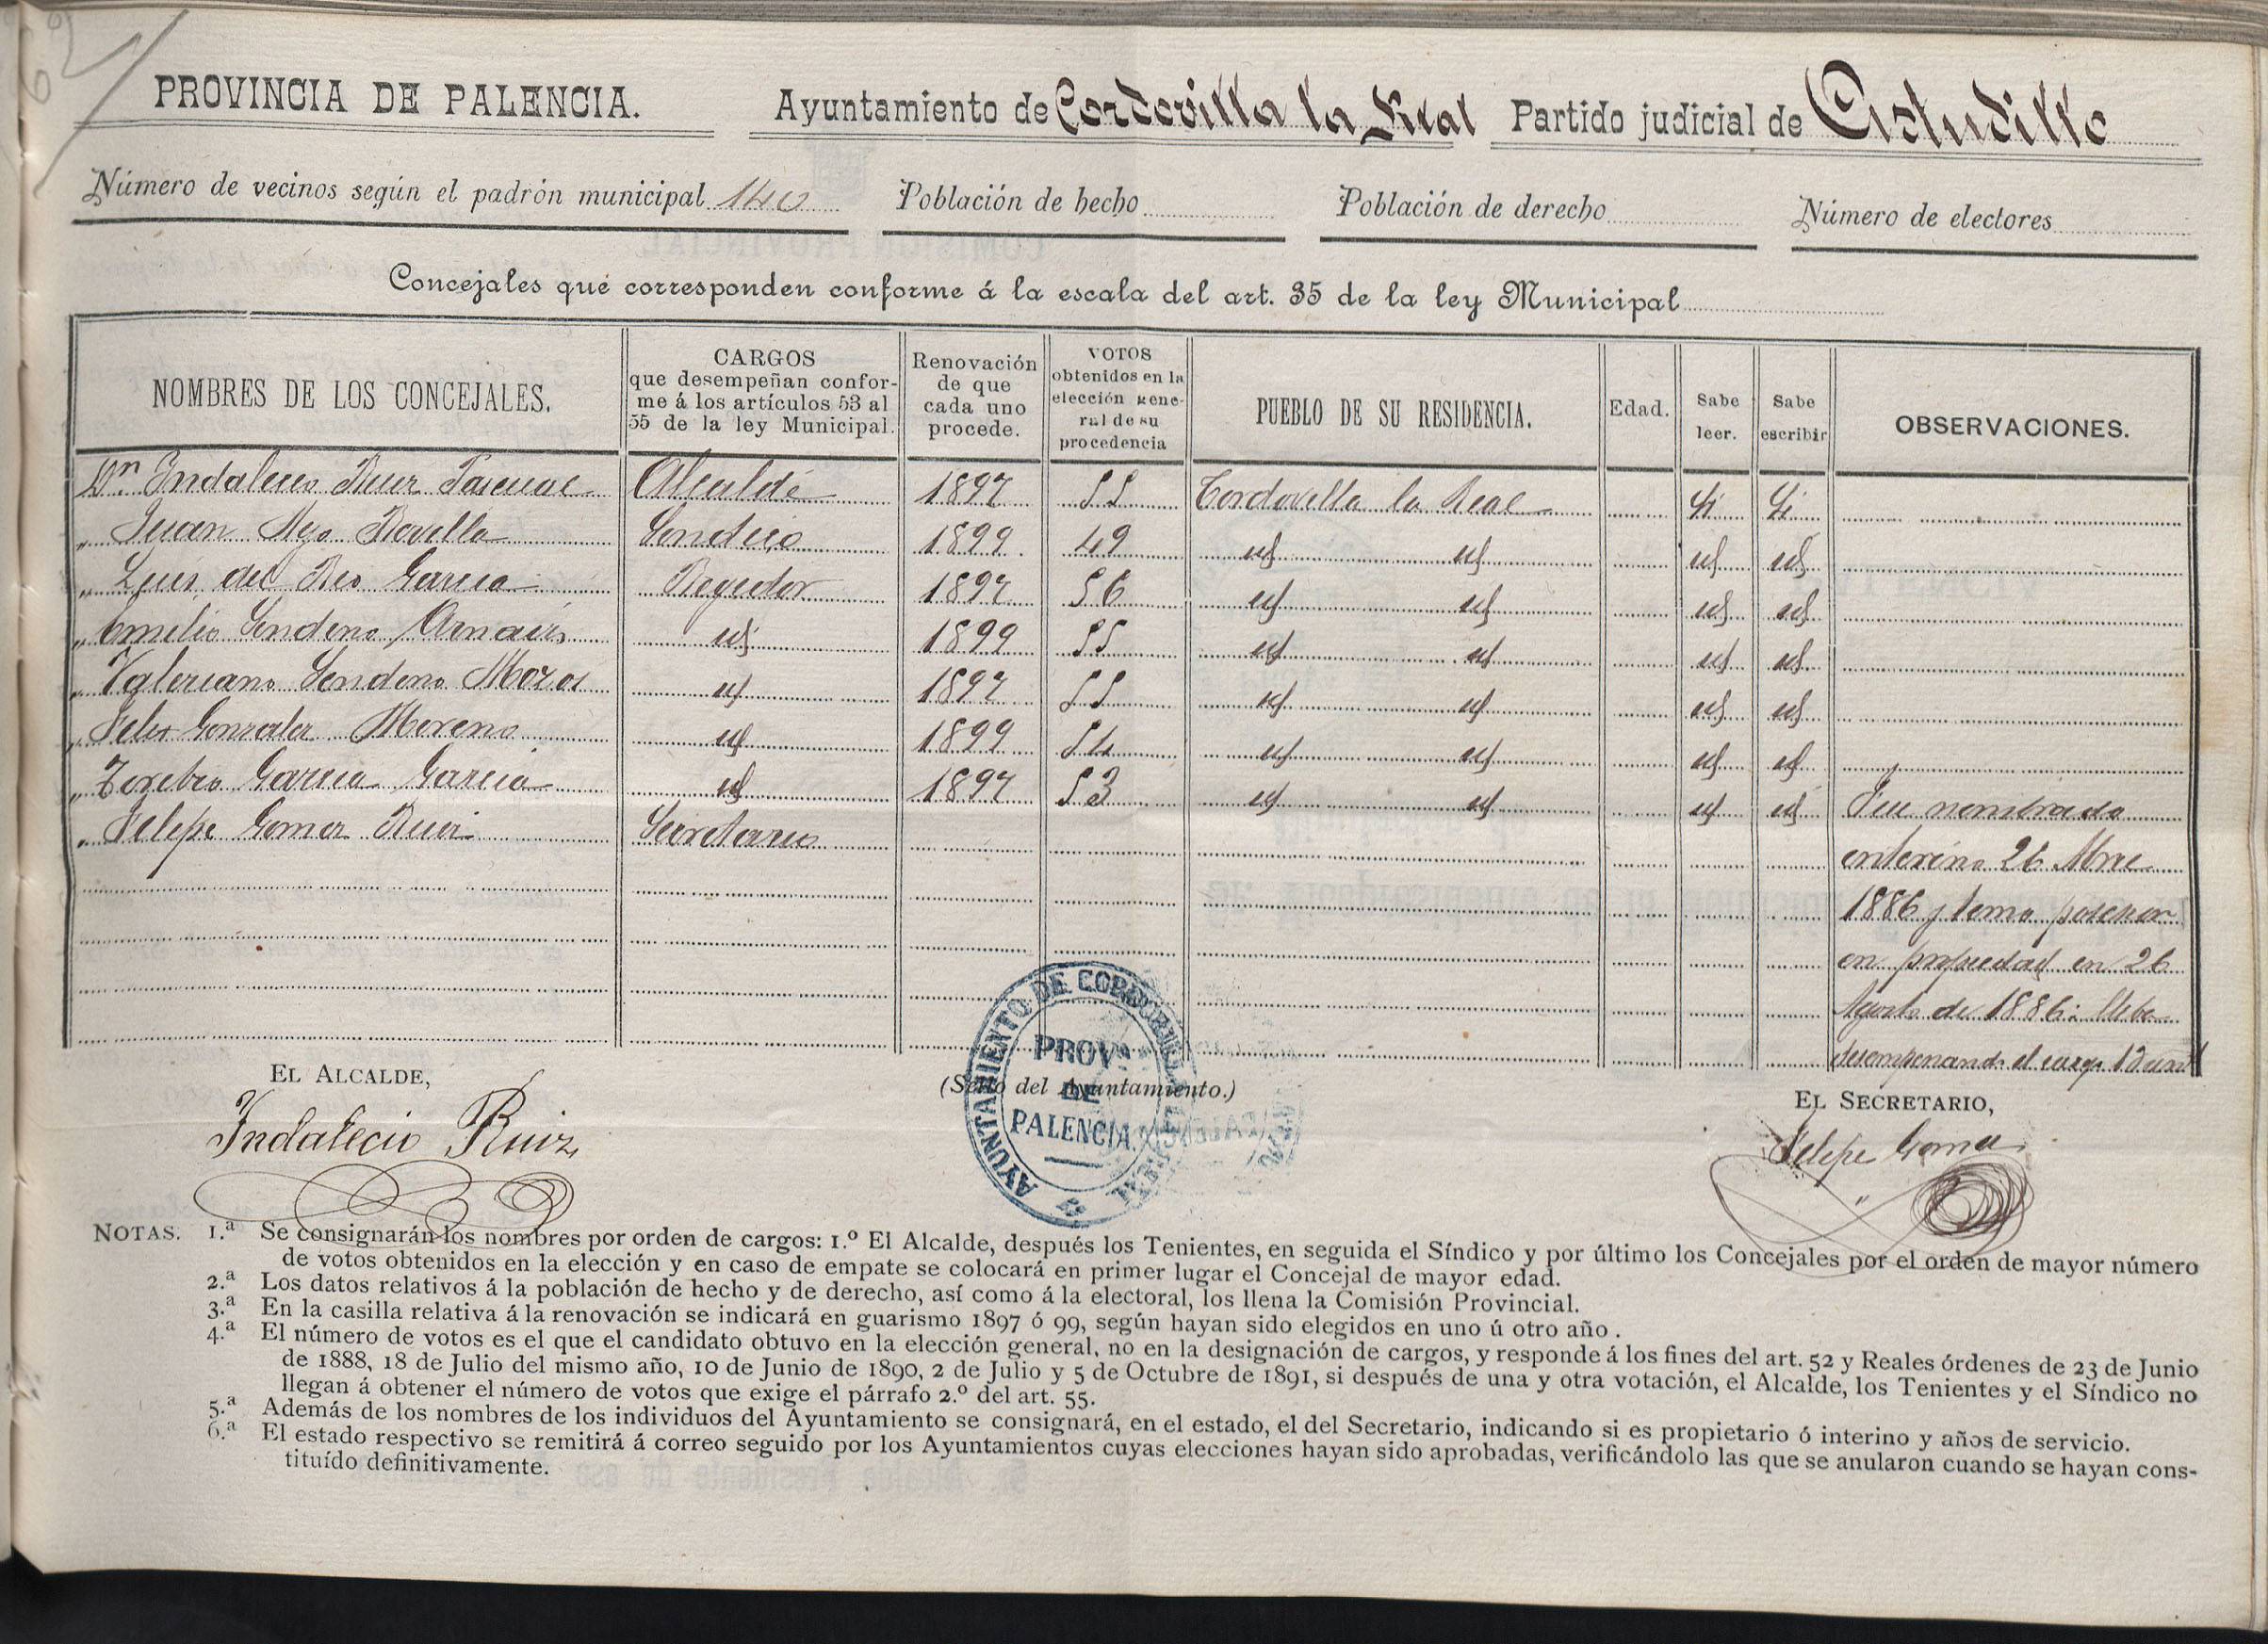 PROVINCIA DE PALENCIA. Ayuntamiento de Cordovilla la Real Partido judicial de Astudillo
Número de vecinos según el padrón municipal 140 Población de hecho Población de derecho Número de electores
Concejales que corresponden conforme á la escala del art. 35 de la ley Municipal
NOMBRES DE LOS CONCEJALES. CARGOS que desempeñan conforme á los artículos 53 al 55 de la ley Municipal. Renovación de que cada uno procede. VOTOS obtenidos en la elección general de su procedencia PUEBLO DE SU RESIDENCIA. Edad. Sabe leer. Sabe escribir OBSERVACIONES.
Dn. Indalecio Ruiz Pascual Alcalde 1897 55 Cordovilla la Real Si Si
" Juan Revilla Sindico 1899 49 id id id id
" Luis del Rio Garcia Regidor 1897 56 id id id id
" Emilio Sendino Arnaiz id 1899 55 id id id id
" Valeriano Sendino Mozos id 1897 55 id id id id
" Felix Gonzalez Moreno id 1899 54 id id id id
" Toribio Garcia Garcia id 1897 53 id id id id Fue nombrado
" Felipe Gomez Ruiz Secretario
interino 26 Mzo
1886 y tomo posesion
en propiedad en 26
Agosto de 1886. Lleva
desempeñando el cargo 13 años
EL ALCALDE, (Sello del Ayuntamiento.) EL SECRETARIO,
Indalecio Ruiz Felipe Gomez
AYUNTAMIENTO DE CORDOVILLA LA REAL
PROVª
DE
PALENCIA
NOTAS. 1.ª Se consignarán los nombres por orden de cargos: 1.º El Alcalde, después los Tenientes, en seguida el Síndico y por último los Concejales por el orden de mayor número
de votos obtenidos en la elección y en caso de empate se colocará en primer lugar el Concejal de mayor edad.
2.ª Los datos relativos á la población de hecho y de derecho, así como á la electoral, los llena la Comisión Provincial.
3.ª En la casilla relativa á la renovación se indicará en guarismo 1897 ó 99, según hayan sido elegidos en uno ú otro año.
4.ª El número de votos es el que el candidato obtuvo en la elección general, no en la designación de cargos, y responde á los fines del art. 52 y Reales órdenes de 23 de Junio
de 1888, 18 de Julio del mismo año, 10 de Junio de 1890, 2 de Julio y 5 de Octubre de 1891, si después de una y otra votación, el Alcalde, los Tenientes y el Síndico no
llegan á obtener el número de votos que exige el párrafo 2.º del art. 55.
5.ª Además de los nombres de los individuos del Ayuntamiento se consignará, en el estado, el del Secretario, indicando si es propietario ó interino y años de servicio.
6.ª El estado respectivo se remitirá á correo seguido por los Ayuntamientos cuyas elecciones hayan sido aprobadas, verificándolo las que se anularon cuando se hayan cons-
tituído definitivamente.